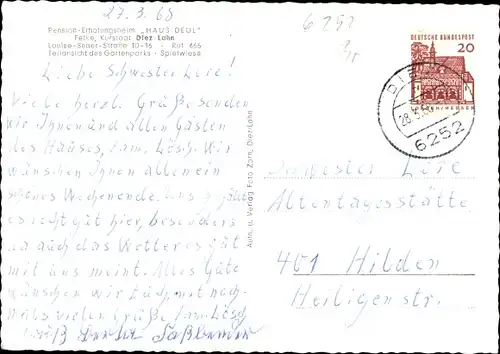 27.3.68
6252
Pension-Erholungsheim „HAUS DEUL"
Felke, Kurstadt Diez-Lahn
Louise-Seher-Straße 10-16 · Ruf 666
Teilansicht des Gartenparks · Spielwiese
Liebe Schwester Leie!
Viele herzl. Grüße senden
wir Ihnen und allen Gästen
des Hauses, Fam. Lösch. Wir
wünschen Ihnen allen ein
schönes Wochenende. Uns gefällt
es recht gut hier, besonders
da auch das Wetter es gut
mit uns meint. Alles Gute
wünschen wir Euch, mit noch-
mals vielen Grüße Fam. Lösch
Gruß
Aufn. u. Verlag Foto Zorn, Diez-Lahn
DEUTSCHE BUNDESPOST
20
DIEZ
28.3.68
6252
Schwester Leie
Altentagesstätte
401 Hilden
Heiligenstr.